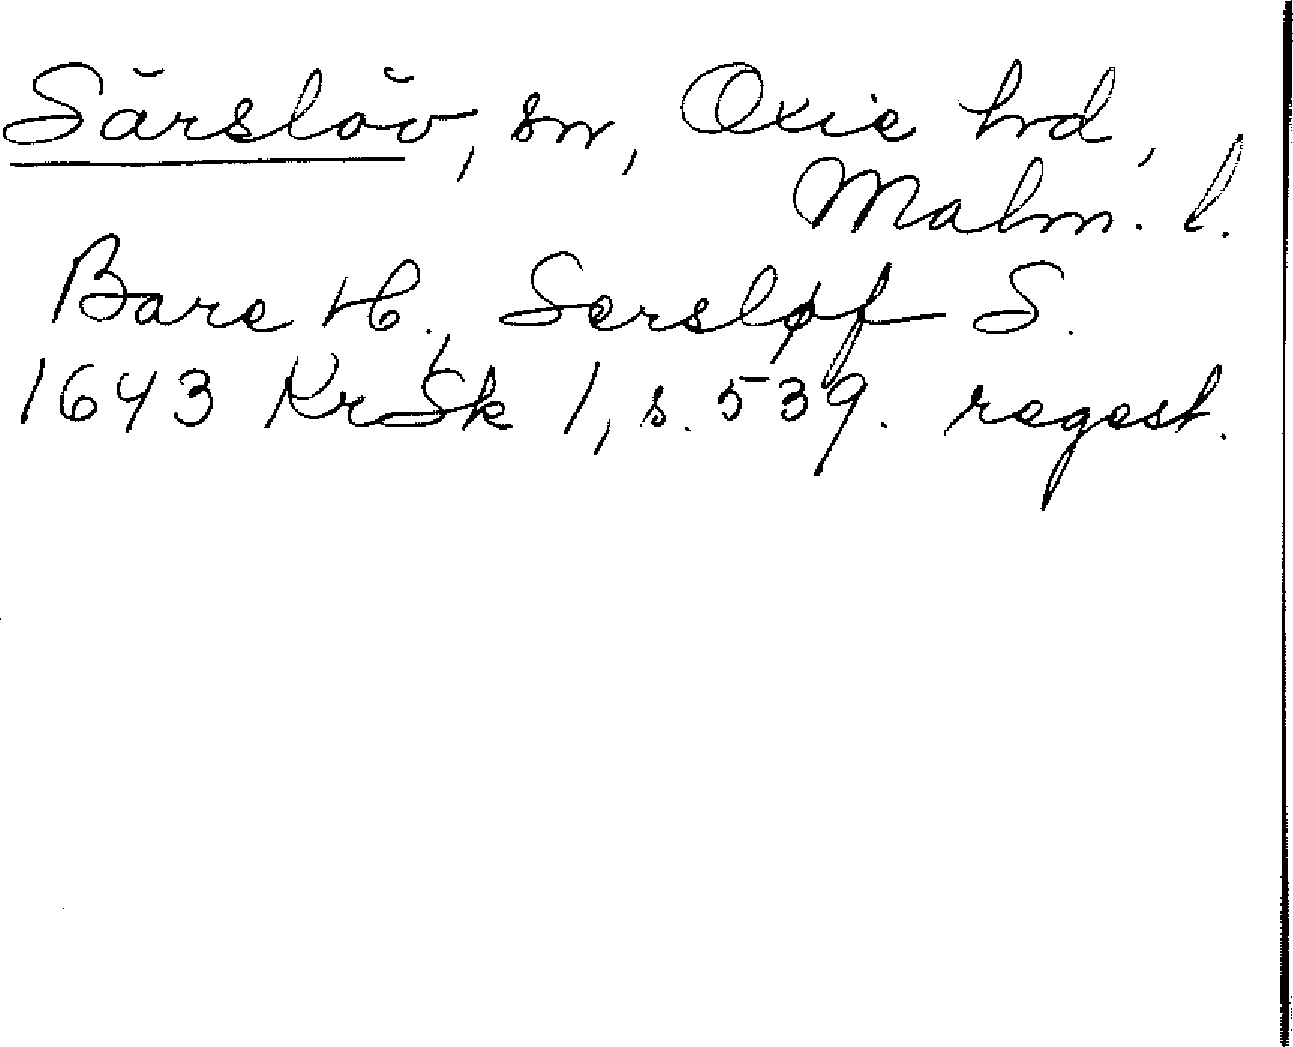 Särslöv, sn, Oxie hrd,
Malm. l.
Bare H., Sersløf S.
1643 KrSk 1, s. 539. regest.